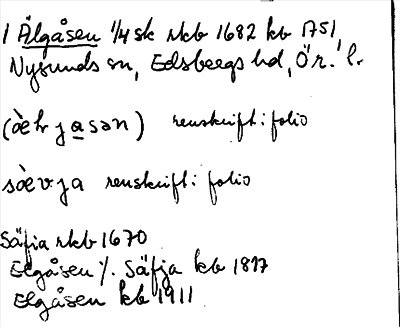 1 Älgåsen 1/4 sk rkb 1682 kb 1751,
Nysunds sn, Edsbergs hd, Ör. l.
(ὲlgjasən) renskrift: folio
sὲvja renskrift: folio
Säfia rkb 1670
Elgåsen %. Säfja kb 1817
Elgåsen kb 1911